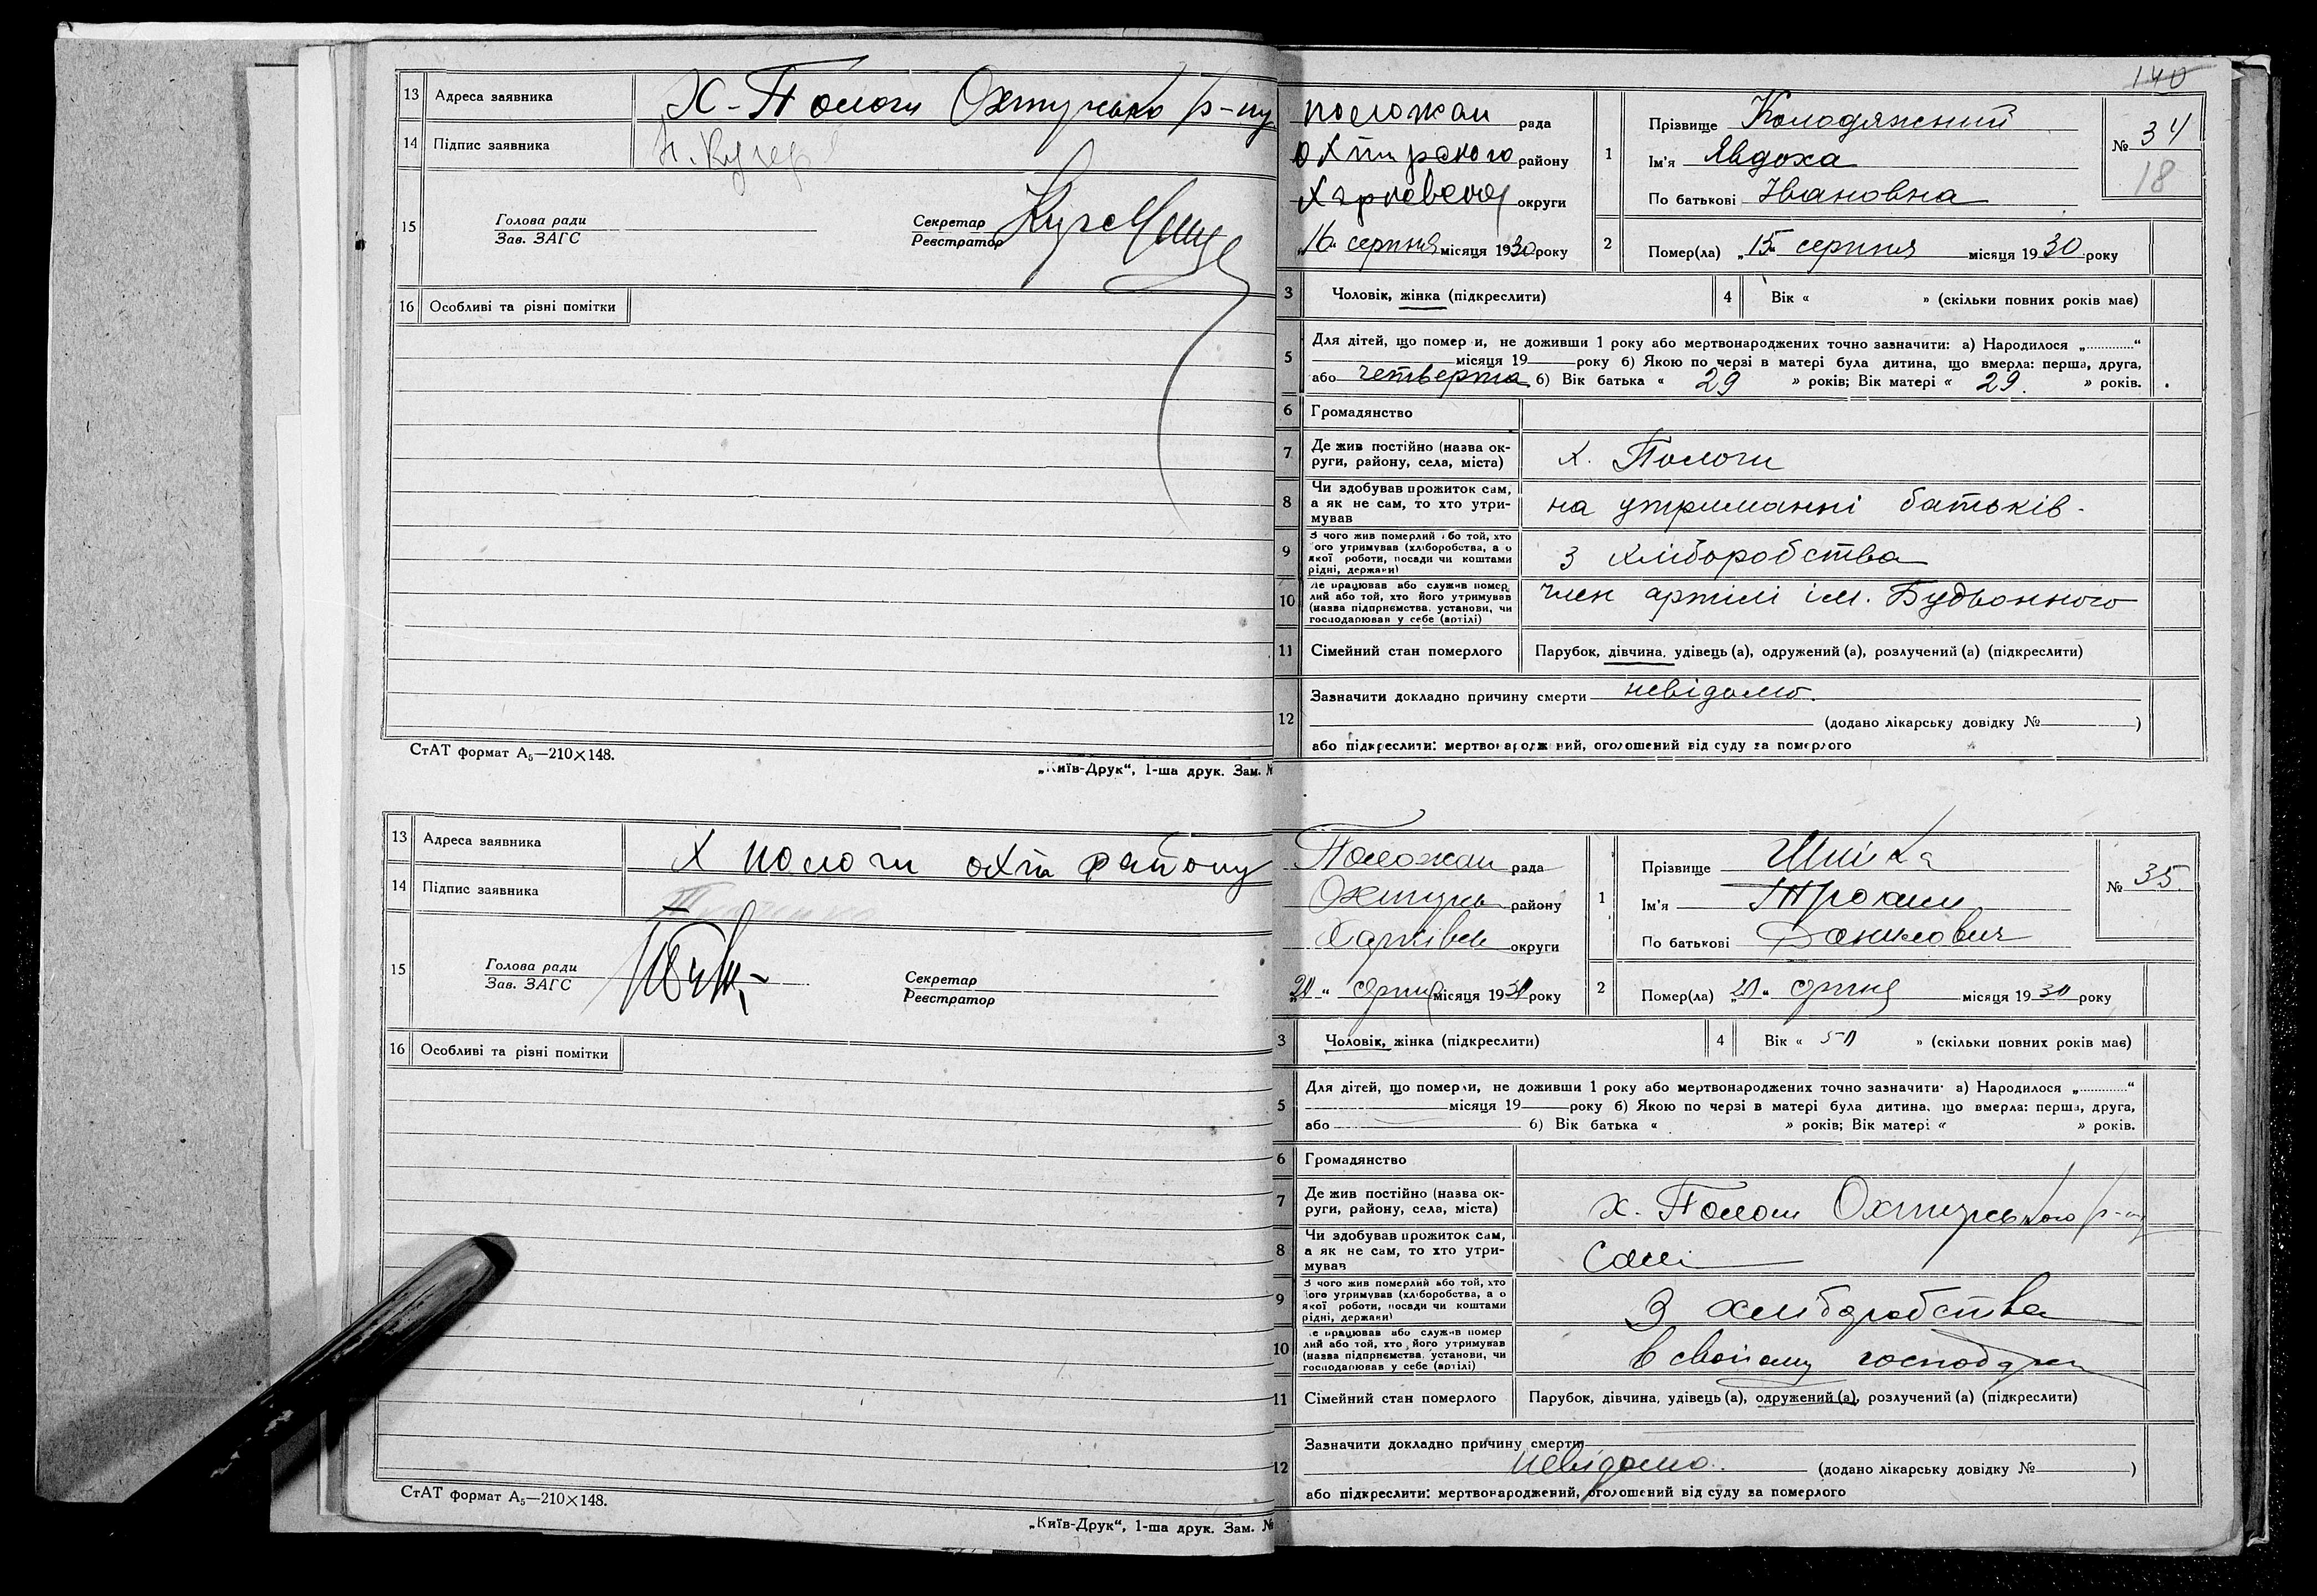 13 Адреса заявника Х-Пологи Охтирсько р-ну
14 Підпис заявника Н. Кучер
15 Голова ради
Зав. ЗАГС
Секретар
Реєстратор
16 Особливі та різні помітки
СтАТ формат А₅—210×148.
„Київ-Друк“, 1-ша друк. Зам. №
13 Адреса заявника Х пологи охт району
14 Підпис заявника
15 Голова ради
Зав. ЗАГС
Секретар
Реєстратор
16 Особливі та різні помітки
СтАТ формат А₅—210×148.
„Київ-Друк“, 1-ша друк. Зам. №
140
положан рада
охтирского району
округи
„16“ серпня місяця 1930 року
1 Прізвище Колодяжний
Ім'я Явдоха
По батькові Івановна
№ 34
18
2 Помер(ла) „15“ серпня місяця 1930 року
3 Чоловік, жінка (підкреслити)
4 Вік « » (скільки повних років має)
5 Для дітей, що померли, не доживши 1 року або мертвонароджених точно зазначити: а) Народилося „............“
місяця 19 року б) Якою по черзі в матері була дитина, що вмерла: перша, друга,
або четверта б) Вік батька « 29 » років; Вік матері « 29 » років.
6 Громадянство
7 Де жив постійно (назва ок-
руги, району, села, міста) х. Пологи
8 Чи здобував прожиток сам,
а як не сам, то хто утри-
мував на утриманні батьків
9 З чого жив померлий або той, хто
його утримував (хліборобства, а о
якої роботи, посади чи коштами
рідні, держави) з хліборобства
10 Де працював або служив помер
лий або той, хто його утримував
(назва підприємства, установи, чи
господарював у себе (артілі) член артілі ім. Будьонного
11 Сімейний стан померлого Парубок, дівчина, удівець (а), одружений (а), розлучений (а) (підкреслити)
12 Зазначити докладно причину смерти невідомо.
(додано лікарську довідку № )
або підкреслити: мертвонароджений, оголошений від суду за померлого
Положан рада
Охтирсь району
Харківск округи
місяця 1930 року
1 Прізвище
Ім'я Трохим
По батькові Данилович
№ 35
2 Помер(ла) „20“ серпня місяця 1930 року
3 Чоловік, жінка (підкреслити)
4 Вік « 50 » (скільки повних років має)
5 Для дітей, що померли, не доживши 1 року або мертвонароджених точно зазначити: а) Народилося „............“
місяця 19 року б) Якою по черзі в матері була дитина, що вмерла: перша, друга,
або б) Вік батька « » років; Вік матері « » років.
6 Громадянство
7 Де жив постійно (назва ок-
руги, району, села, міста) х. Пологи Охтирського р-ну
8 Чи здобував прожиток сам,
а як не сам, то хто утри-
мував Сам
9 З чого жив померлий або той, хто
його утримував (хліборобства, а о
якої роботи, посади чи коштами
рідні, держави) З хліборобства
10 Де працював або служив помер
лий або той, хто його утримував
(назва підприємства, установи, чи
господарював у себе (артілі) в свойому
11 Сімейний стан померлого Парубок, дівчина, удівець (а), одружений (а), розлучений (а) (підкреслити)
12 Зазначити докладно причину смерти
невідомо. (додано лікарську довідку № )
або підкреслити: мертвонароджений, оголошений від суду за померлого